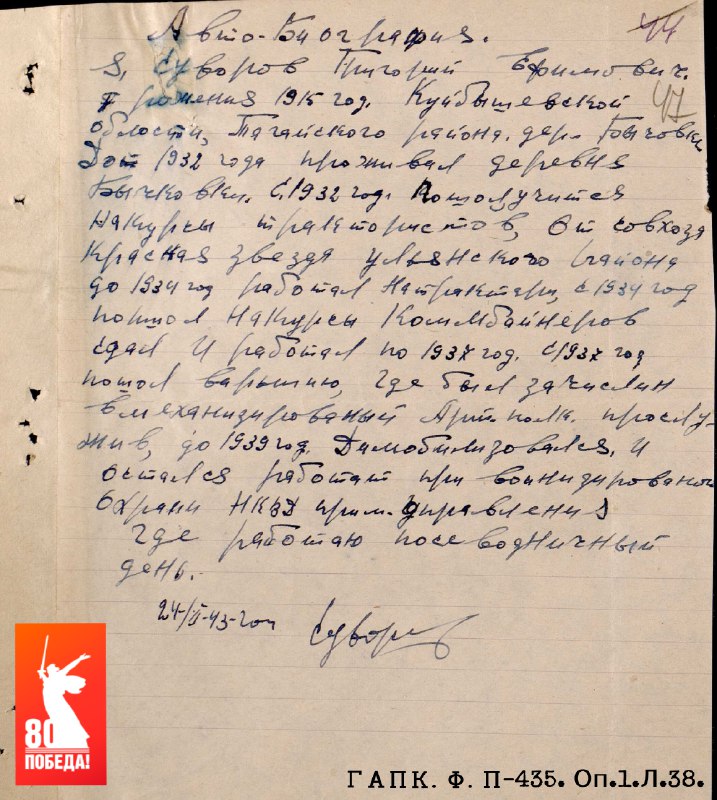 44
Авто-Биография.
47
Я, Суворов Григорий Ефимович.
рожения 1915 год. Куйбышевской
области, Тагайского района. дер. Бычовки
До 1932 года проживал деревня
Бычковки. С 1932 год. Пошол учится
на курсы трактористов, от совхоза
Красная звезда ульянского района
до 1934 год работал на трактари, с 1934 год
пошол на курсы Коммбайнеров
сдал и работал по 1937 год. С 1937 год
пошол варьмию, где был зачислин
в механизированый Арт. полк. прослу-
жив, до 1939 год. Димобилизовался. и
остался работат при воинизированой
охрани НКВД прим. управления
где работаю посеводничный
день.
24/II-43-год Суворов
80
ПОБЕДА!
ГАПК. Ф. П-435. Оп.1.Л.38.